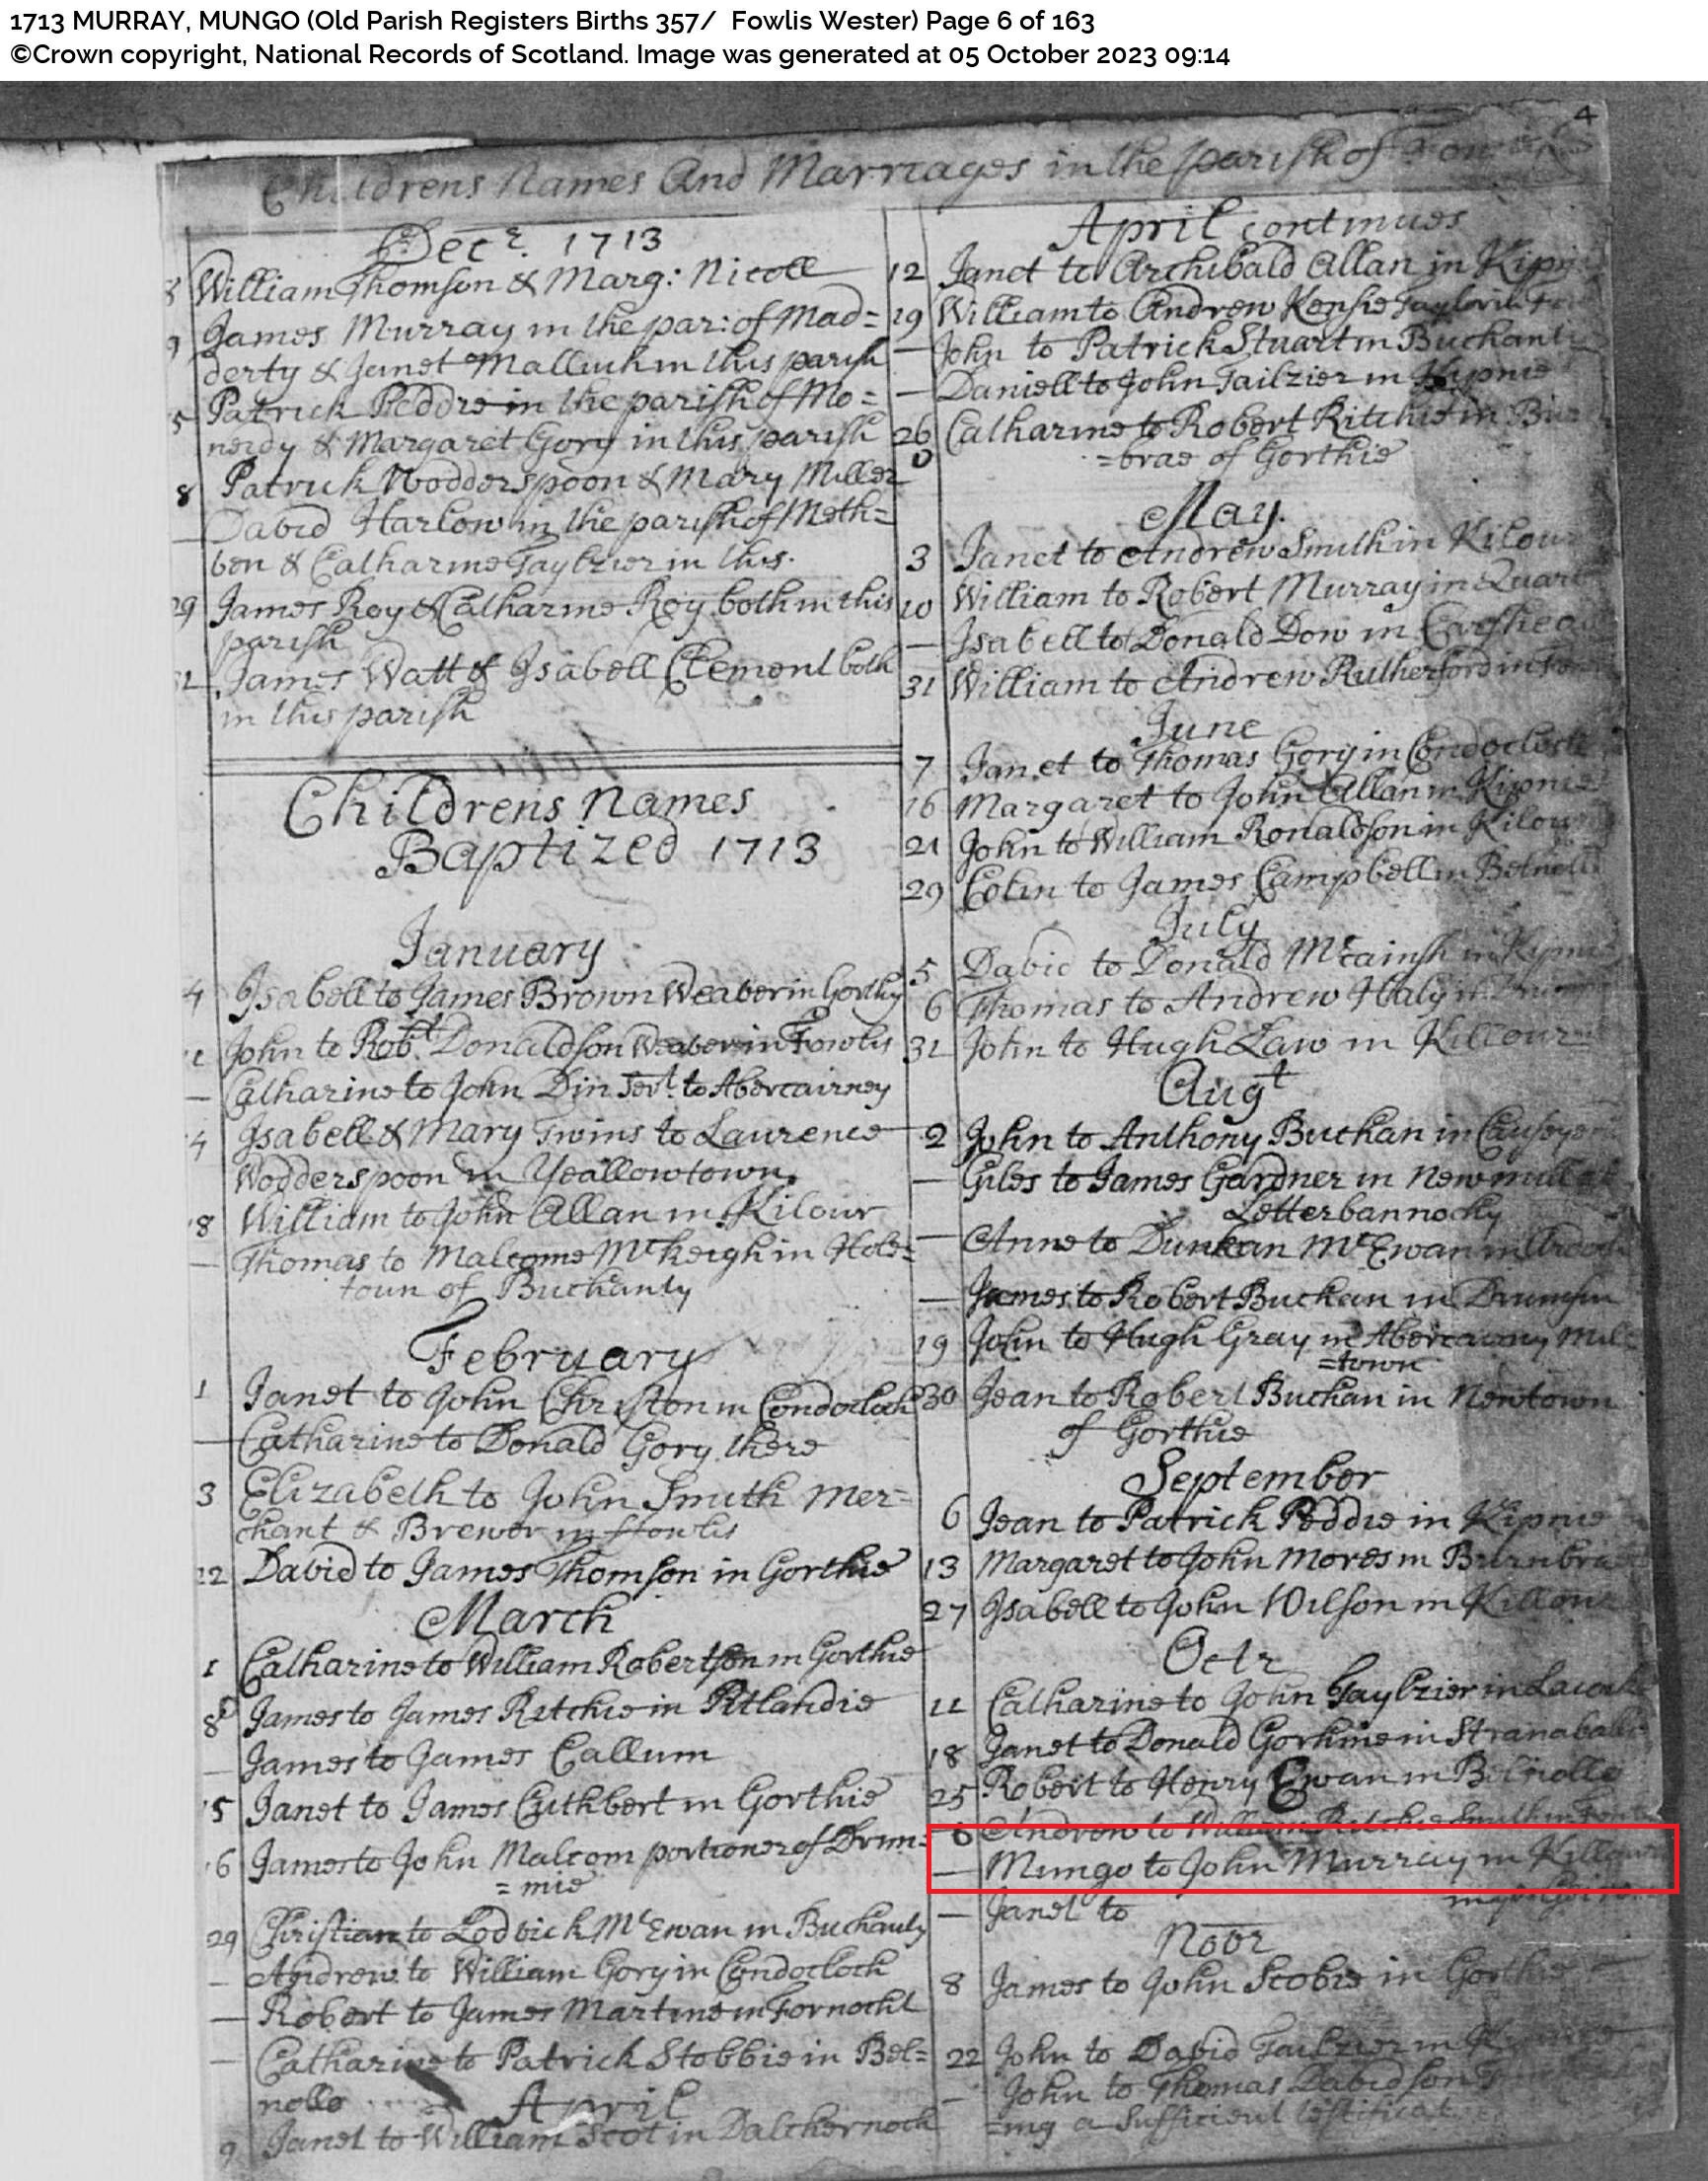 1713 MURRAY, MUNGO (Old Parish Registers Births 357/ Fowlis Wester) Page 6 of 163
©Crown copyright, National Records of Scotland. Image was generated at 05 October 2023 09:14
4
Childrens Names And Marriages in the parish of
Decr. 1713
8 William Thomson & Marg: Nicoll
9 James Murray in the par: of Mad=
derty & Janet Malluch in this parish
5 Patrick Peddie in the parish of Mo=
nedy & Margaret Gory in this parish
8 Patrick Wodderspoon & Mary Miller
— David Harlow in the parish of Meth=
ven & Catharine Taylzier in this.
29 James Roy & Catharine Roy both in this
parish
James Watt & Isabell Clement both
in this parish
Childrens Names
Baptized 1713
January
4 Isabell to James Brown Weaver in Gorthy
John to Robt. Donaldson Weaver in Fowlis
— Catharine to John Din Servt. to Abercairney
4 Isabell & Mary Twins to Laurence
Wodderspoon in Yeallowtown.
18 William to John Allan in Kilour
— Thomas to Malcome McKeigh in Hole=
toun of Buchanty
February
1 Janet to John Christon in Condocloch
— Catharine to Donald Gory there
3 Elizabeth to John Smith Mer=
chant & Brewer in ffowlis
22 David to James Thomson in Gorthie
March
1 Catharine to William Robertson in Gorthie
8 James to James Ritchie in Pitlandie
— James to James Callum
15 Janet to James Cuthbert in Gorthie
16 James to John Malcom portioner of Drum=
=mie
29 Christian to Lodvick McEwan in Buchanty
— Andrew to William Gory in Condocloch
— Robert to James Martine in Fornocht
— Catharine to Patrick Stobbie in Bel=
nollo
April
9 Janet to William Scot in Dalchernoch
April continues
12 Janet to Archibald Allan in
19 William to Andrew Kensie
— John to Patrick Stuart in Buchanty
— Daniell to John Tailzier in Kipnie
26 Catharine to Robert Ritchie in
=brae of Gorthie
May.
3 Janet to Andrew Smith in Kilour
10 William to Robert Murray in
— Isabell to Donald Dow in
31 William to Andrew Rutherford in
June
7 Janet to Thomas Gory in
16 Margaret to John Allan in Kipnie
21 John to William Ronaldson in Kilour
29 Colin to James Campbell in Belnollo
July
5 David to Donald McCainsh in
6 Thomas to Andrew Haly in
31 John to Hugh Law in Killour
Augt
2 John to Anthony Buchan in
— Giles to James Gardner in Newmill at
Letterbannochy
— Anne to Dunkan McEwan in
— James to Robert Buchan in
19 John to Hugh Gray in Abercairny Mil=
=town
30 Jean to Robert Buchan in Newtown
of Gorthie
September
6 Jean to Patrick Peddie in Kipnie
13 Margaret to John Mores in Burnbrae
27 Isabell to John Wilson in Killour
Octr
11 Catharine to John Taylzier in
18 Janet to Donald Gorhine in
25 Robert to Henry Ewan in Belnollo
6 Andrew to William Ritchie Smith in
— Mungo to John Murray in Killour
— Janet to
Novr
8 James to John Scobie in Gorthie
22 John to David Tailzier in
— John to Thomas Davidson
=ing a sufficient testificat